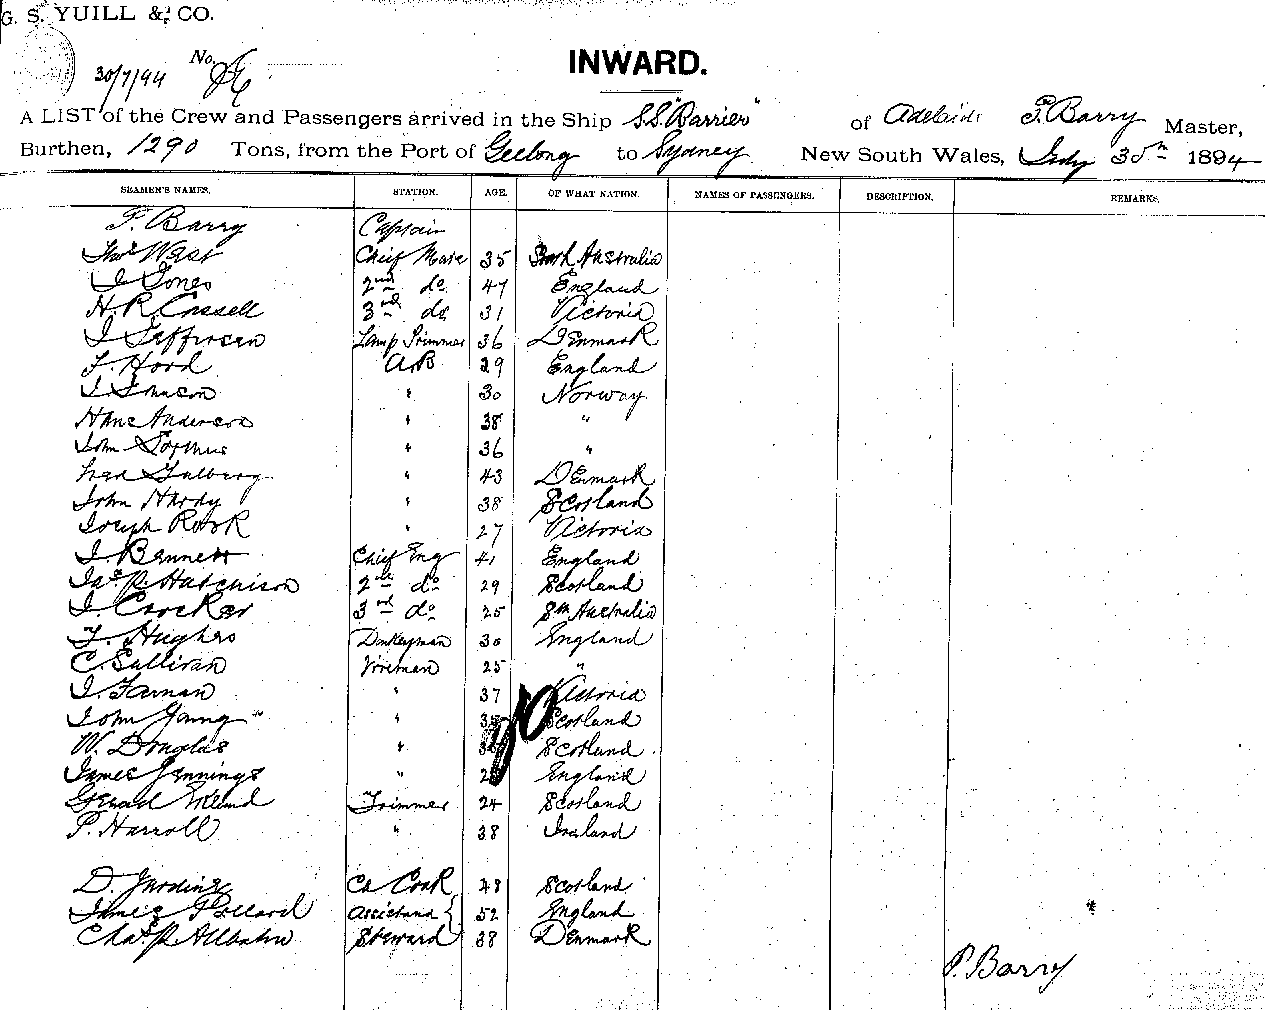 G. S. YUILL & CO.
INWARD.
30/7/94 No.
A LIST of the Crew and Passengers arrived in the Ship S.S. "Barrier" of Adelaide P. Barry Master,
Burthen, 1290 Tons, from the Port of Geelong to Sydney New South Wales, July 30th 1894
SEAMEN'S NAMES. STATION. AGE. OF WHAT NATION. NAMES OF PASSENGERS. DESCRIPTION. REMARKS.
P. Barry Captain
Thos West Chief Mate 35 South Australia
J Jones 2nd do 47 England
H. R. Cassell 3rd do 31 Victoria
J Jeffersen Lamp Trimmer 36 Denmark
F. Hood AB 29 England
J. Johnson " 30 Norway
Hans Anderson " 38 "
John " 36 "
" 43 Denmark
John Hardy " 38 Scotland
Joseph Rook " 27 Victoria
J. Bennett Chief Eng 41 England
Jas P. Hutchison 2nd do 29 Scotland
J. Crocker 3rd do 25 Sth Australia
T. Hughes Donkeyman 30 England
C Sullivan Fireman 25 "
J. " 37 Victoria
John Young " Scotland
W. Douglas " Scotland
James Jennings " England
Trimmer 24 Scotland
P. Harroll " 38 Ireland
D. Jardine Ch Cook 48 Scotland
James Pollard Assistand 52 England
Chas P. Steward 38 Denmark
P. Barry